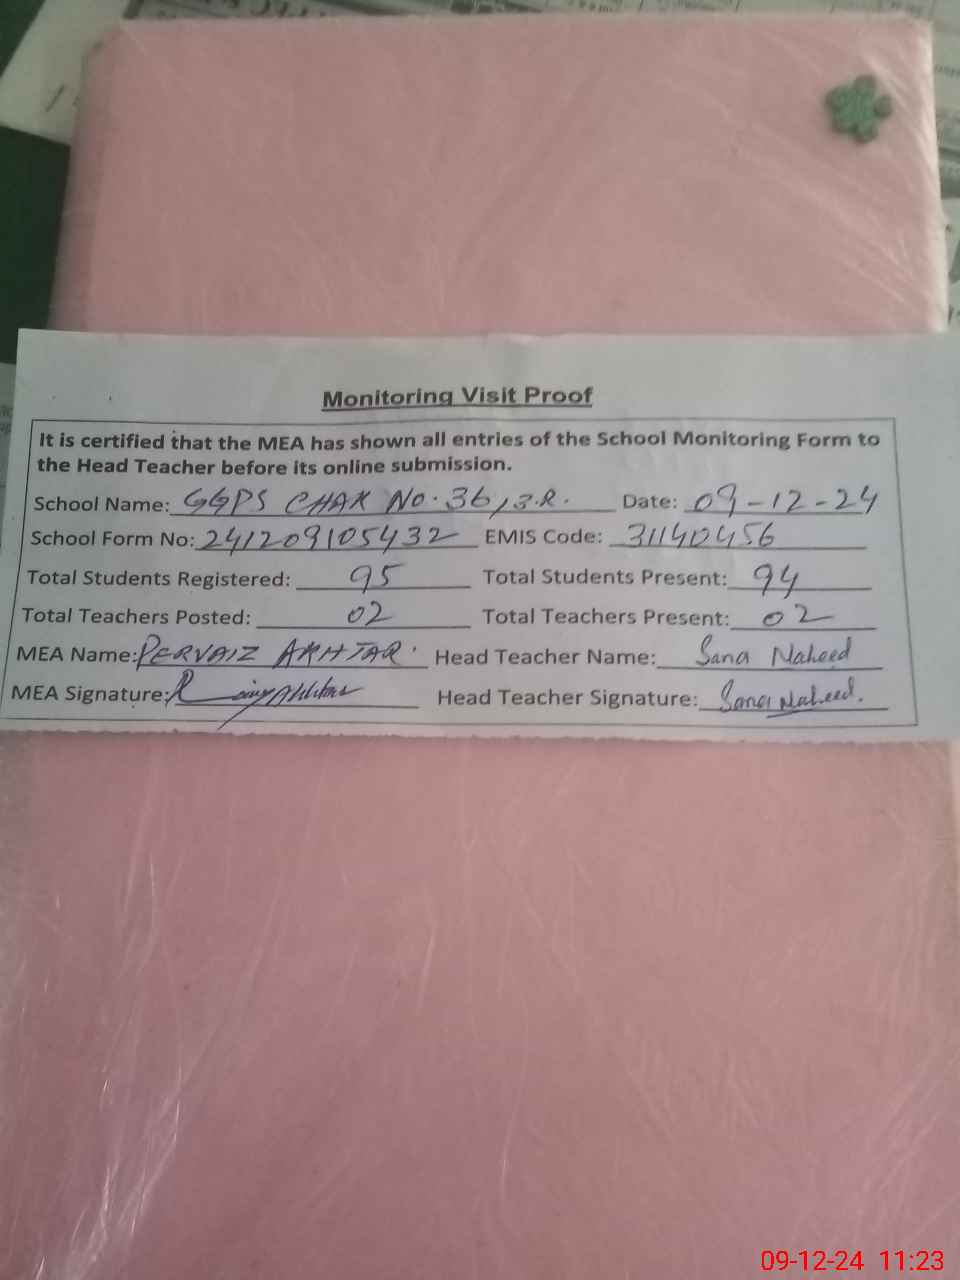 Monitoring Visit Proof
It is certified that the MEA has shown all entries of the School Monitoring Form to
the Head Teacher before its online submission.
School Name: GGPS CHAK No. 36/3.R. Date: 09-12-24
School Form No: 241209105432 EMIS Code: 31140456
Total Students Registered: 95 Total Students Present: 94
Total Teachers Posted: 02 Total Teachers Present: 02
MEA Name: PERVAIZ AKHTAR. Head Teacher Name: Sana Naheed
MEA Signature: Head Teacher Signature: Sana Naheed.
09-12-24 11:23